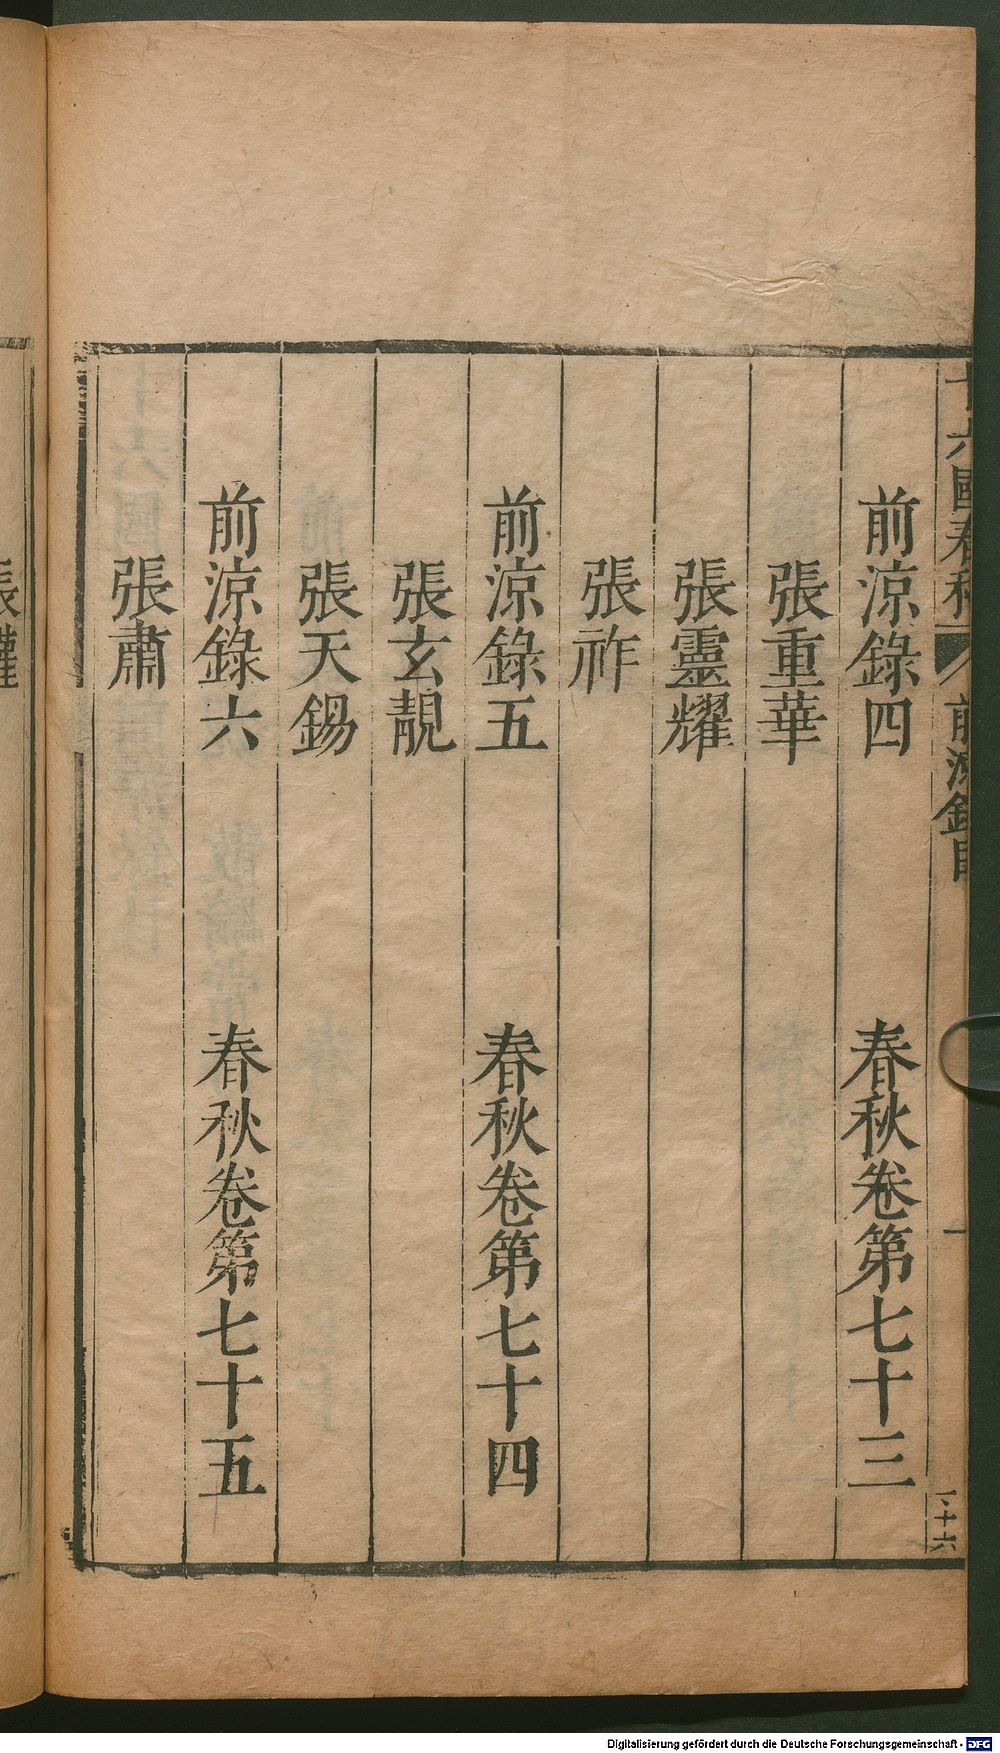 十六國春秋 前涼錄目 一
前涼錄四 春秋卷第七十三
張重華
張靈耀
張祚
前涼錄五 春秋卷第七十四
張玄靚
張天錫
前涼錄六 春秋卷第七十五
張肅
Digitalisierung gefördert durch die Deutsche Forschungsgemeinschaft - DFG